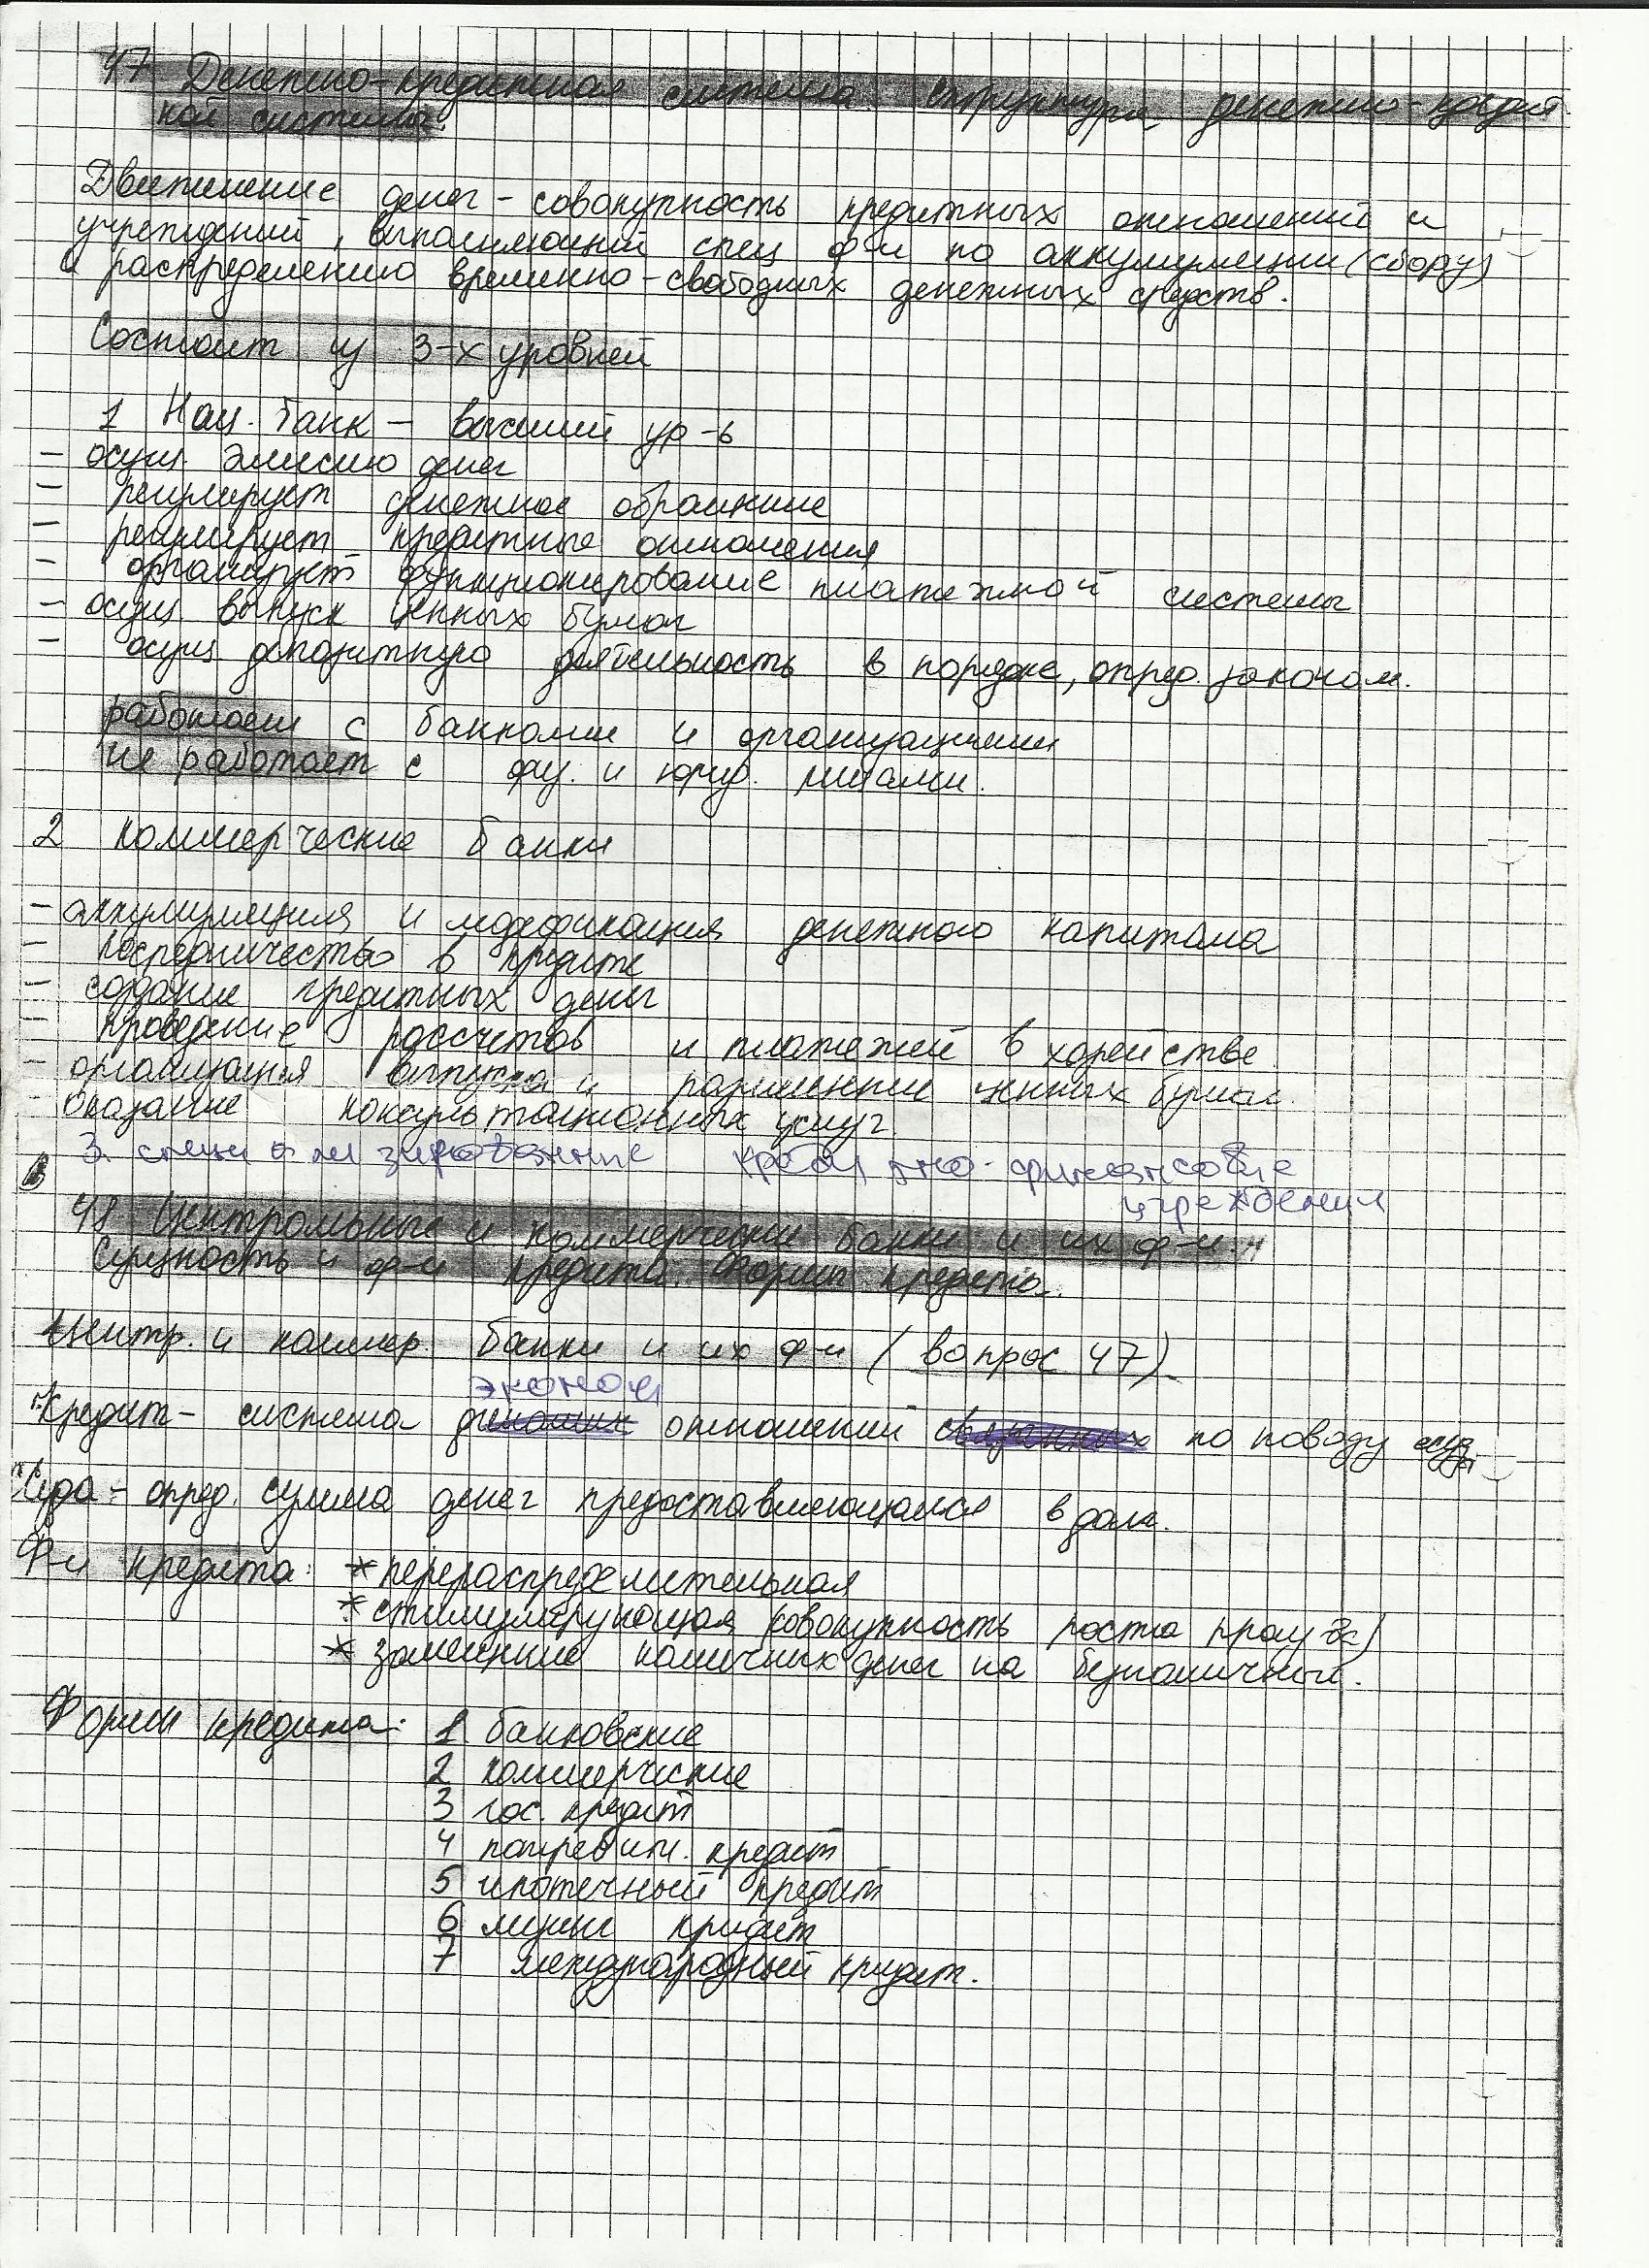 47 Денежно-кредитная система. Структура денежно-кредит
ной системы.
Движение денег - совокупность кредитных отношений и
учреждений, выполняющий спец ф-и по аккумуляции (сбору)
и распределению временно-свободных денежных средств.
Состоит из 3-х уровней
1 Нац. банк - высший ур-ь
- осущ. эмиссию денег
- регулирует денежное обращение
- регулирует кредитные отношения
- организует функционирование платежной системы
- осущ. выпуск ценных бумаг
- осущ депозитную деятельность в порядке, опред. законом.
работает с банками и организациями
не работает с физ. и юрид. лицами.
2 Коммерческие банки
- аккумуляция и модификация денежного капитала
- посредничество в кредите
- создание кредитных денег
- проведение рассчетов и платежей в хозяйстве
- организация выпуска и размещение ценных бумаг.
- оказание консультационных услуг.
3. специализированние кредитно-финансовые
учреждения
48 Центральные и коммерчески банки и их ф-и.
Сущность и ф-и кредита. Формы кредита.
Центр. и коммер. банки и их ф-и (вопрос 47).
эконом
Кредит - система отношений по поводу ссуды
Ссуда - опред. сумма денег предоставляющаяся в долг.
Ф-и кредита: * перераспределительная
* стимулирующая (совокупность роста произ-ва)
* замещение наличных денег на безналичный.
Формы кредита: 1 банковские
2 коммерческие
3 гос. кредит
4 потребит. кредит
5 ипотечный кредит
6 кредит
7 международный кредит.